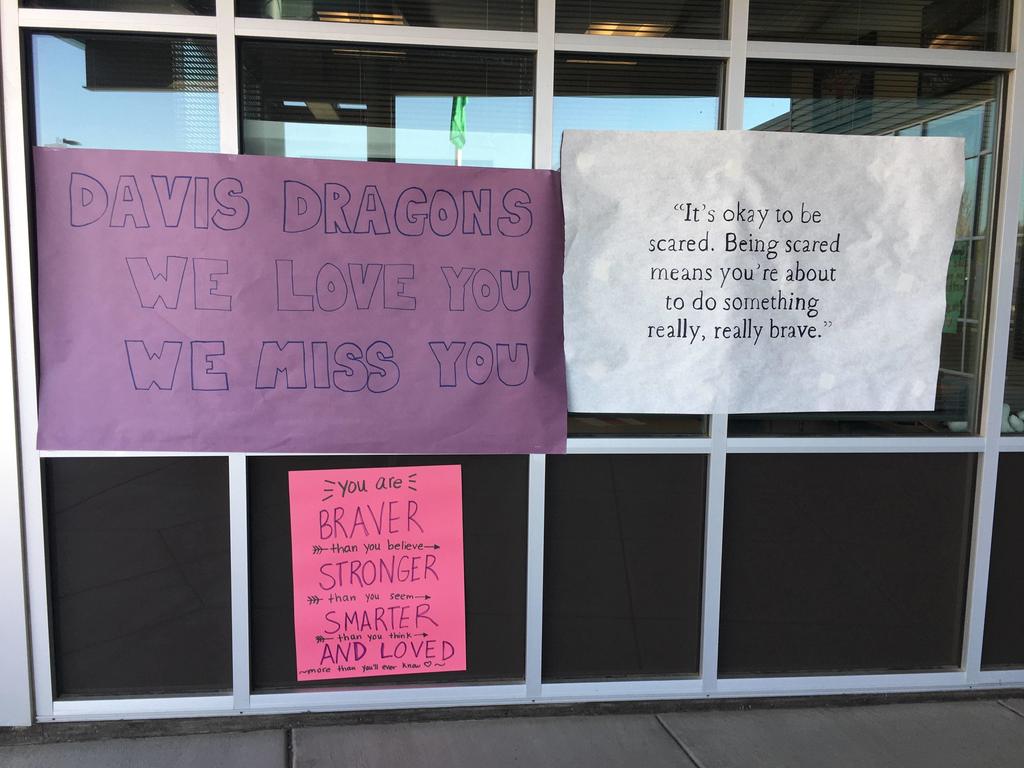 DAVIS DRAGONS
WE LOVE YOU
WE MISS YOU
"It's okay to be
scared. Being scared
means you're about
to do something
really, really brave."
you are
BRAVER
than you believe
STRONGER
than you seem
SMARTER
than you think
AND LOVED
~more than you'll ever know ♡~